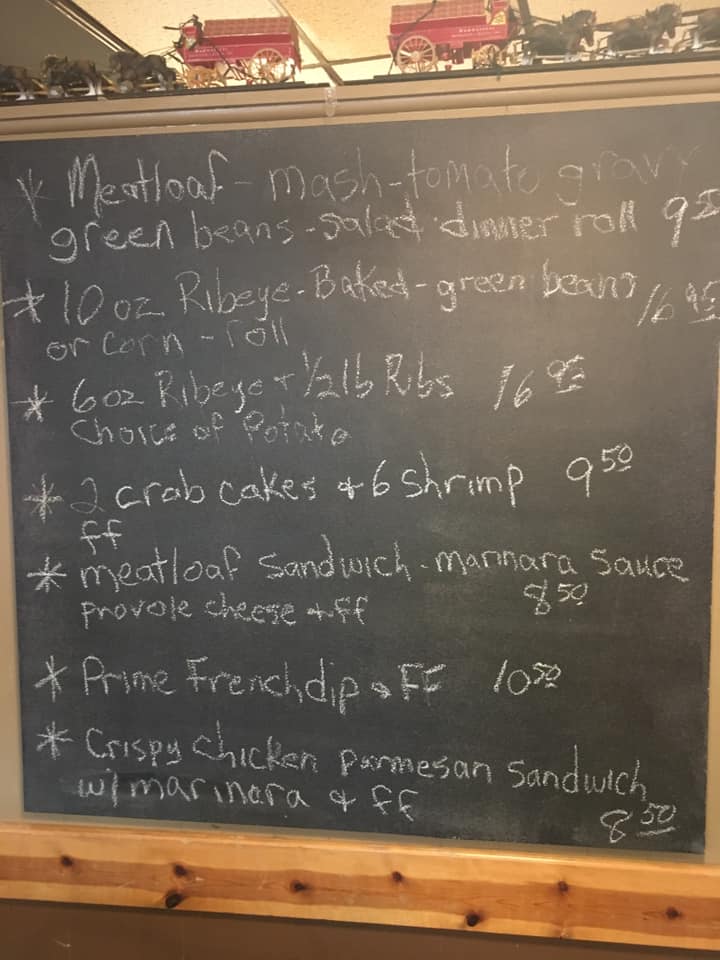 * Meatloaf - mash - tomato gravy
green beans - salad dinner roll 9 50
* 10 oz Ribeye - Baked - green beans 16 95
or corn - roll
* 6oz Ribeye + 1/2 lb Ribs 16 95
Choice of Potato
* 2 crab cakes + 6 Shrimp 9 50
ff
* meatloaf Sandwich - marinara Sauce
provole cheese + ff 8 50
* Prime French dip & FF 10 50
* Crispy Chicken parmesan Sandwich
w/ marinara & ff 8 50